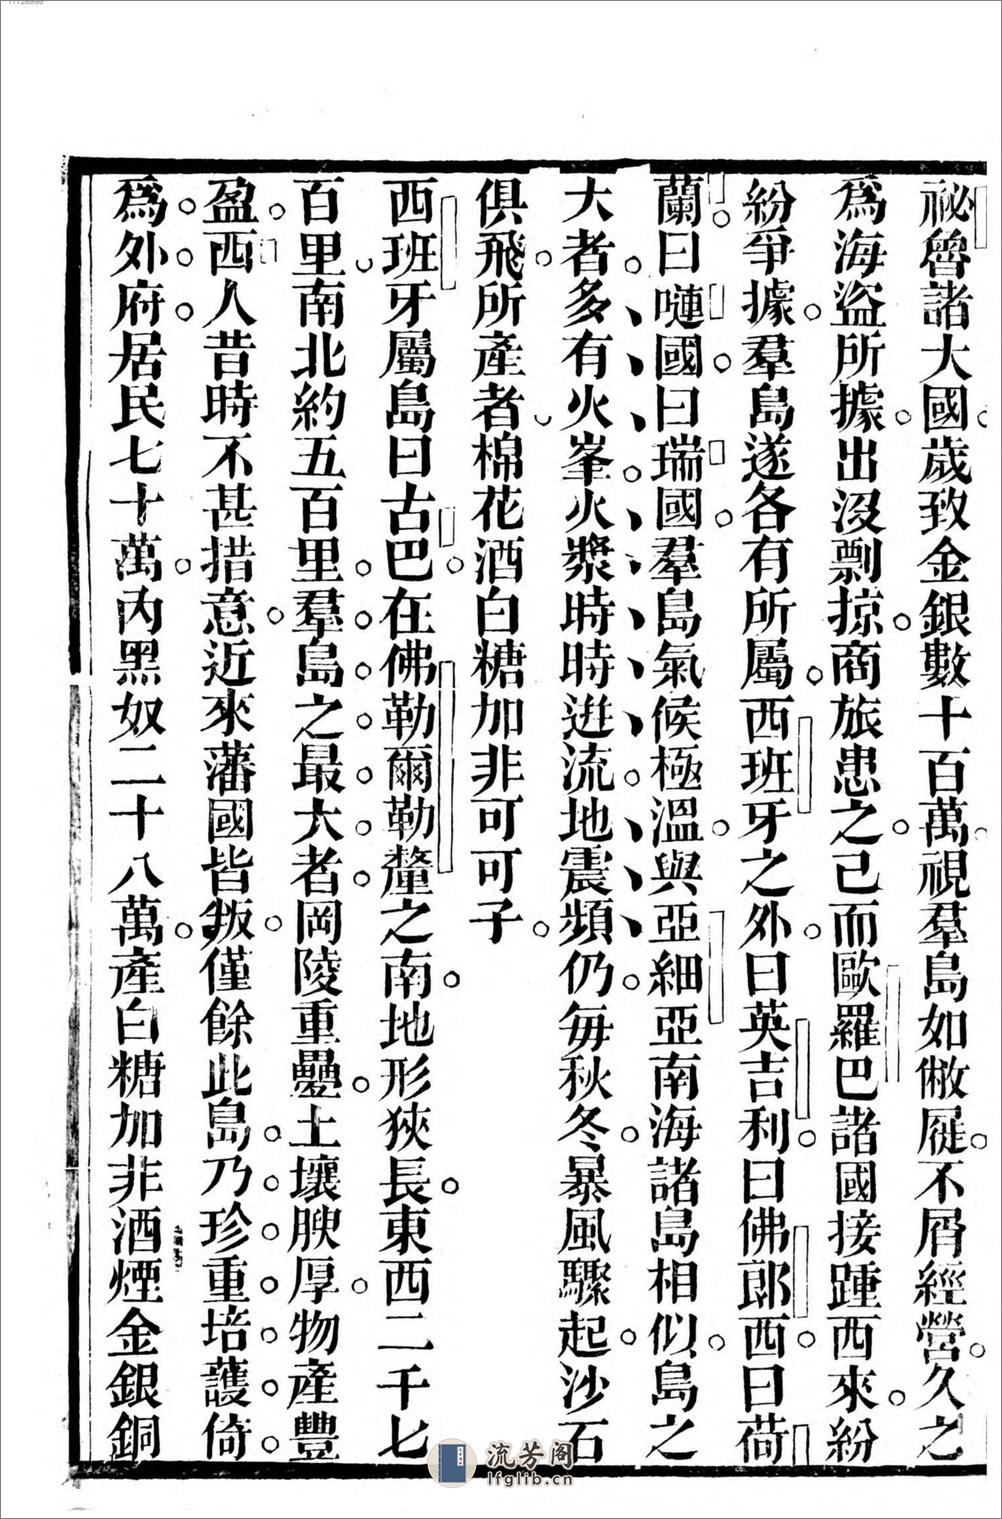 祕魯諸大國歲致金銀數十百萬視羣島如敝屣不屑經營久之
爲海盜所據出沒剽掠商旅患之已而歐羅巴諸國接踵西來紛
紛爭據羣島遂各有所屬西班牙之外曰英吉利曰佛郎西曰荷
蘭曰嗹國曰瑞國羣島氣候極溫與亞細亞南海諸島相似島之
大者多有火峯火漿時時迸流地震頻仍每秋冬暴風驟起沙石
俱飛所產者棉花酒白糖加非可可子
西班牙屬島曰古巴在佛勒爾勒釐之南地形狹長東西二千七
百里南北約五百里羣島之最大者岡陵重疊土壤腴厚物產豐
盈西人昔時不甚措意近來藩國皆叛僅餘此島乃珍重培護倚
爲外府居民七十萬內黑奴二十八萬產白糖加非酒煙金銀銅
流芳阁
lfglib.cn